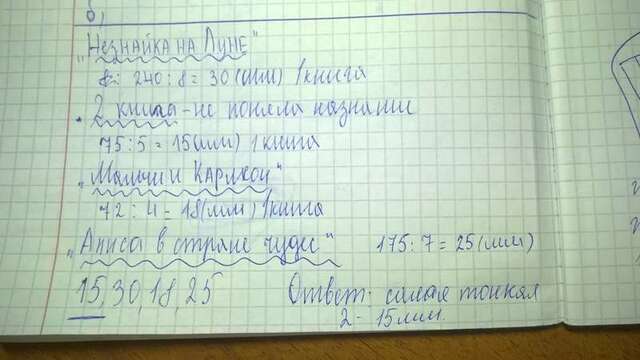 б)
"Незнайка на Луне"
240 : 8 = 30 (мм) 1 книга
2 книга - не поняла название
75 : 5 = 15 (мм) 1 книга
"Малыш и Карлсон"
72 : 4 = 18 (мм) 1 книга
"Алиса в стране чудес" 175 : 7 = 25 (мм)
15 30, 18, 25 Ответ: самая тонкая
2 - 15 мм.